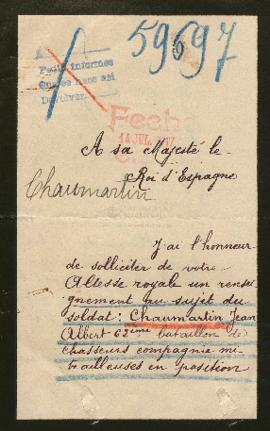 59697
Pedir informes
Devolver
Fecha
14 JUL.
A sa Majesté le
Roi d'Espagne
Chaumartin
J'ai l'honneur
de solliciter de votre
Altesse royale un rensei
gnement au sujet du
soldat: Chaumartin Jean
Albert 62ème bataillon de
chasseurs compagnie mi-
trailleuses en position